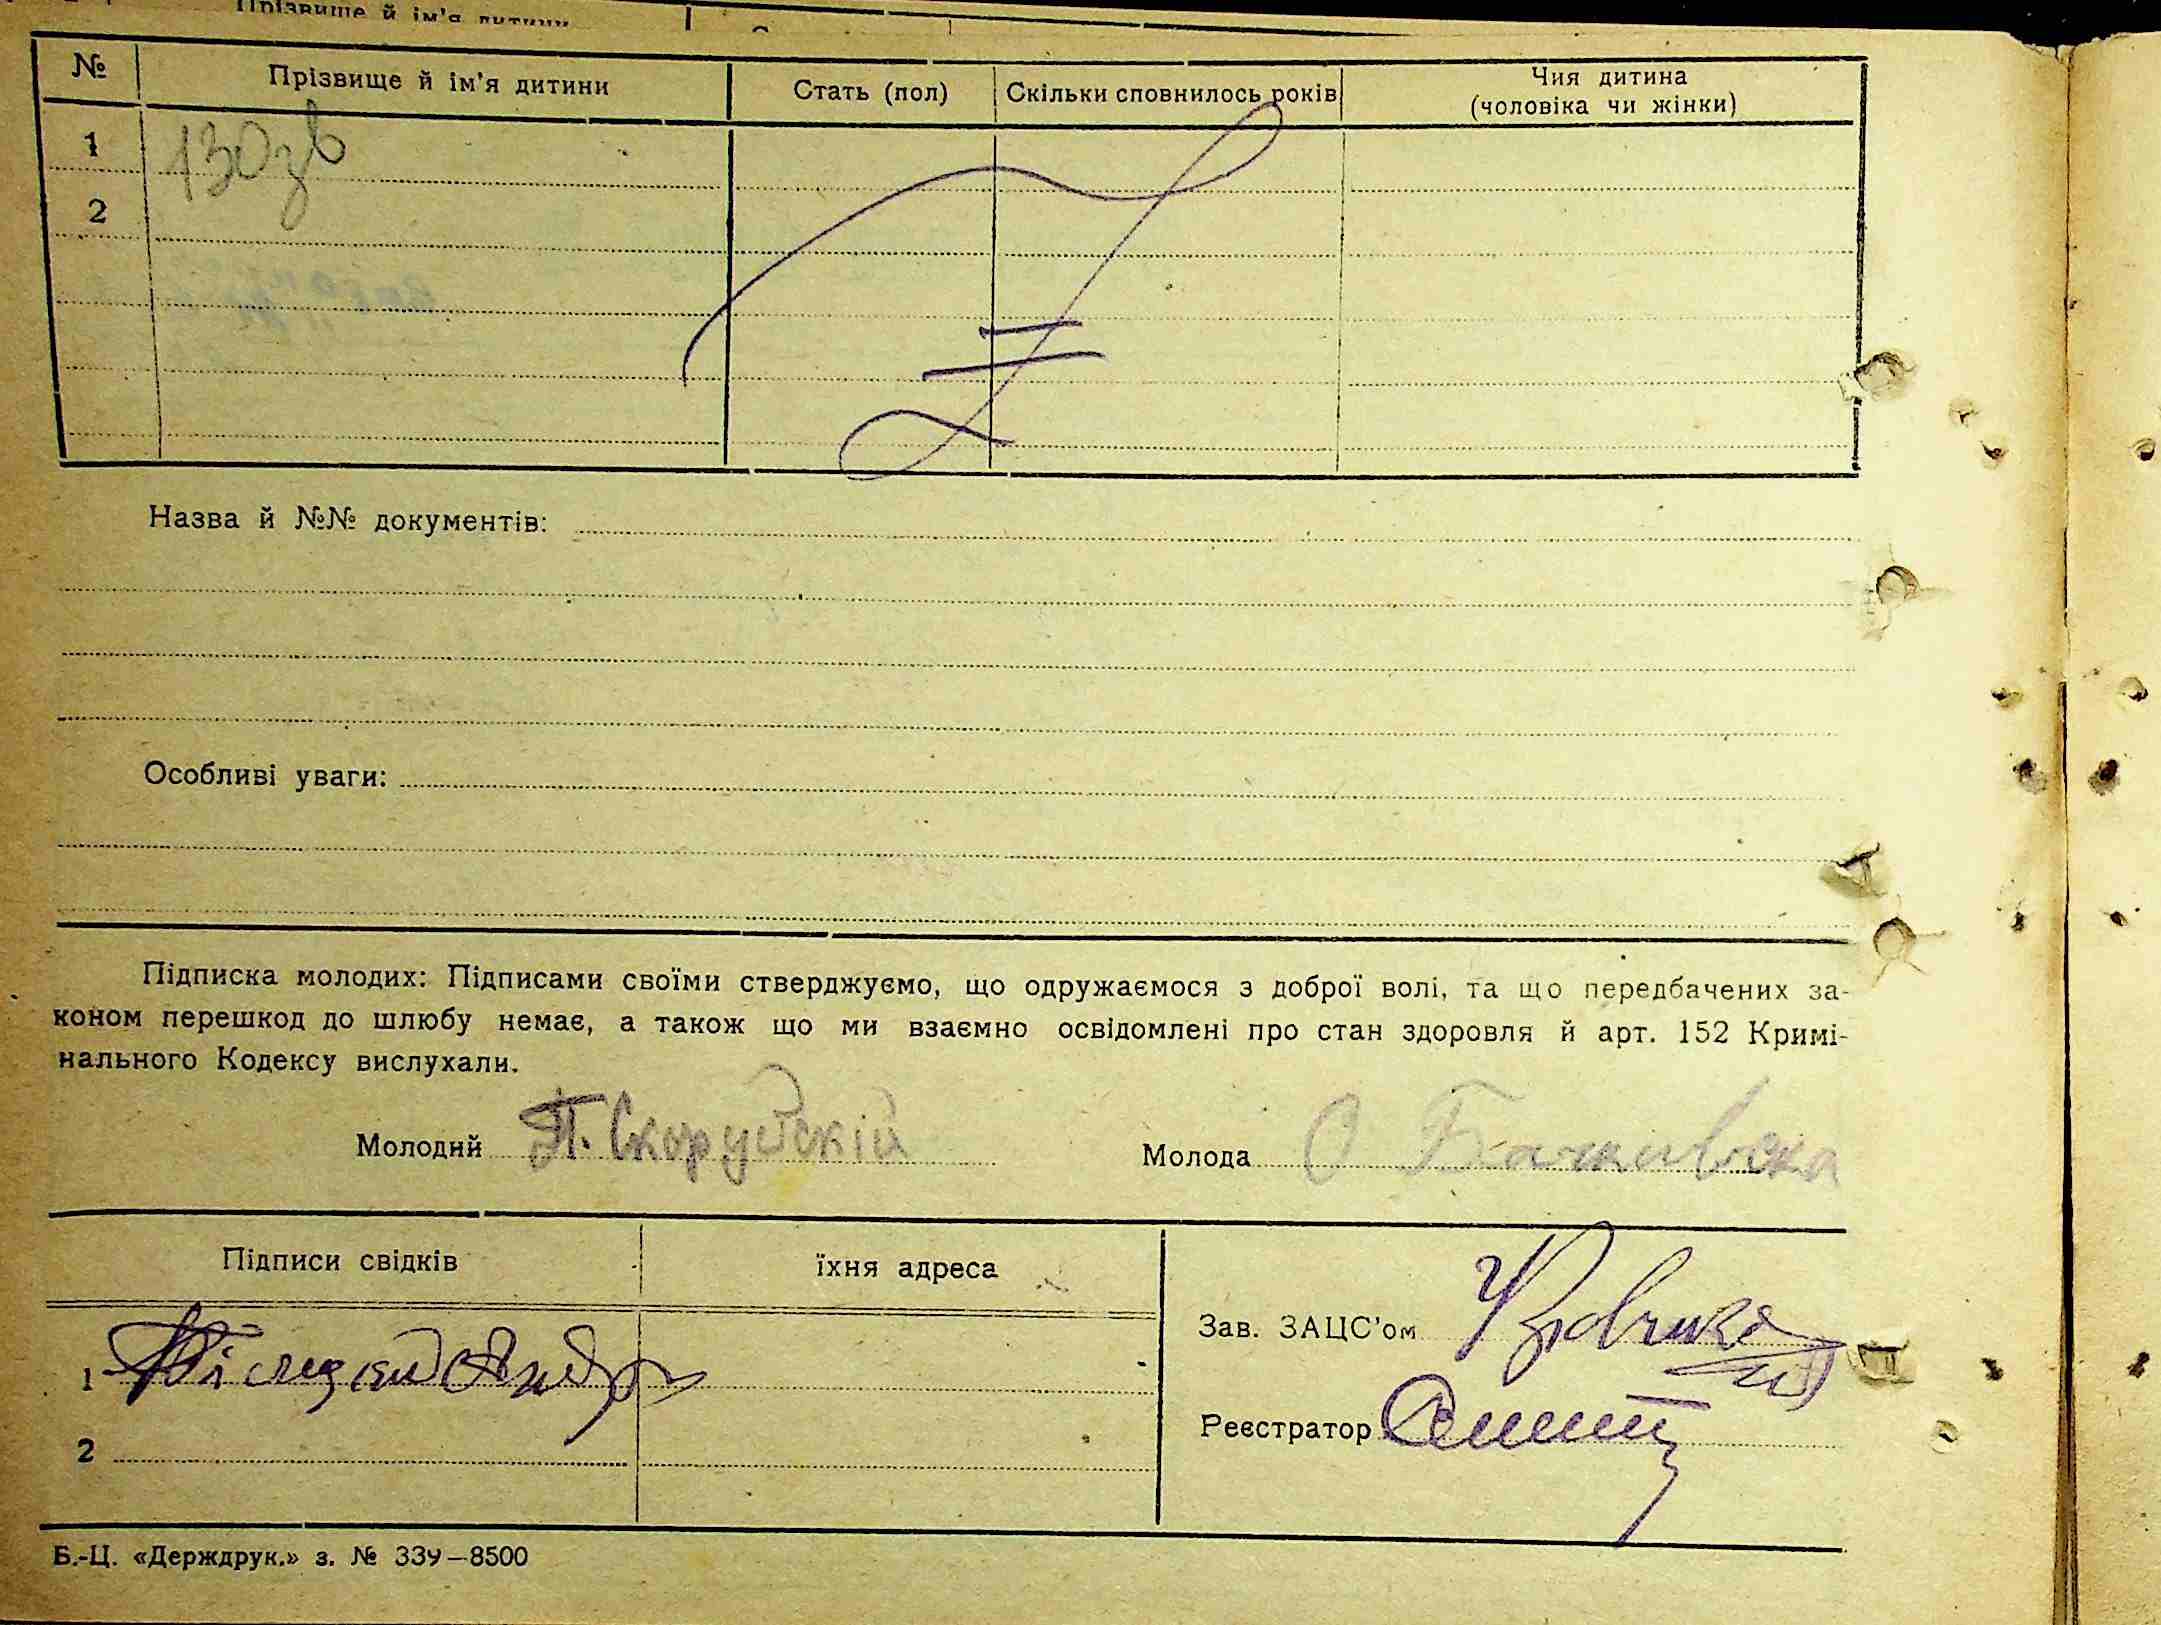 Прізвище й ім'я дитини
№ Прізвище й ім'я дитини Стать (пол) Скільки сповнилось років Чия дитина
(чоловіка чи жінки)
1 130зв
2
Назва й №№ документів:
Особливі уваги:
Підписка молодих: Підписами своїми стверджуємо, що одружаємося з доброї волі, та що передбачених за-
коном перешкод до шлюбу немає, а також що ми взаємно освідомлені про стан здоровля й арт. 152 Кримі-
нального Кодексу вислухали.
Молодий П. Скоруйскій Молода О
Підписи свідків їхня адреса
Зав. ЗАЦС'ом
1
Реєстратор
2
Б.-Ц. «Держдрук.» з. № 339—8500